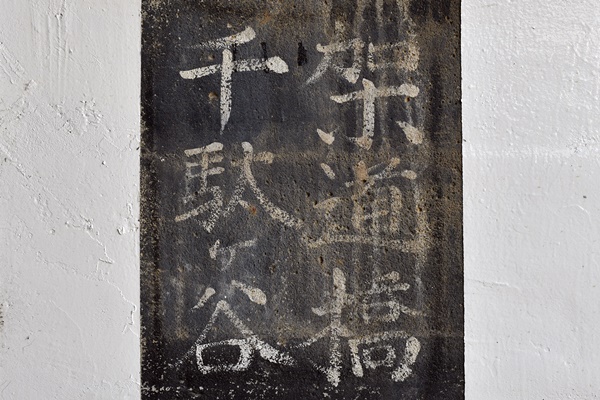 千駄ヶ谷
架道橋